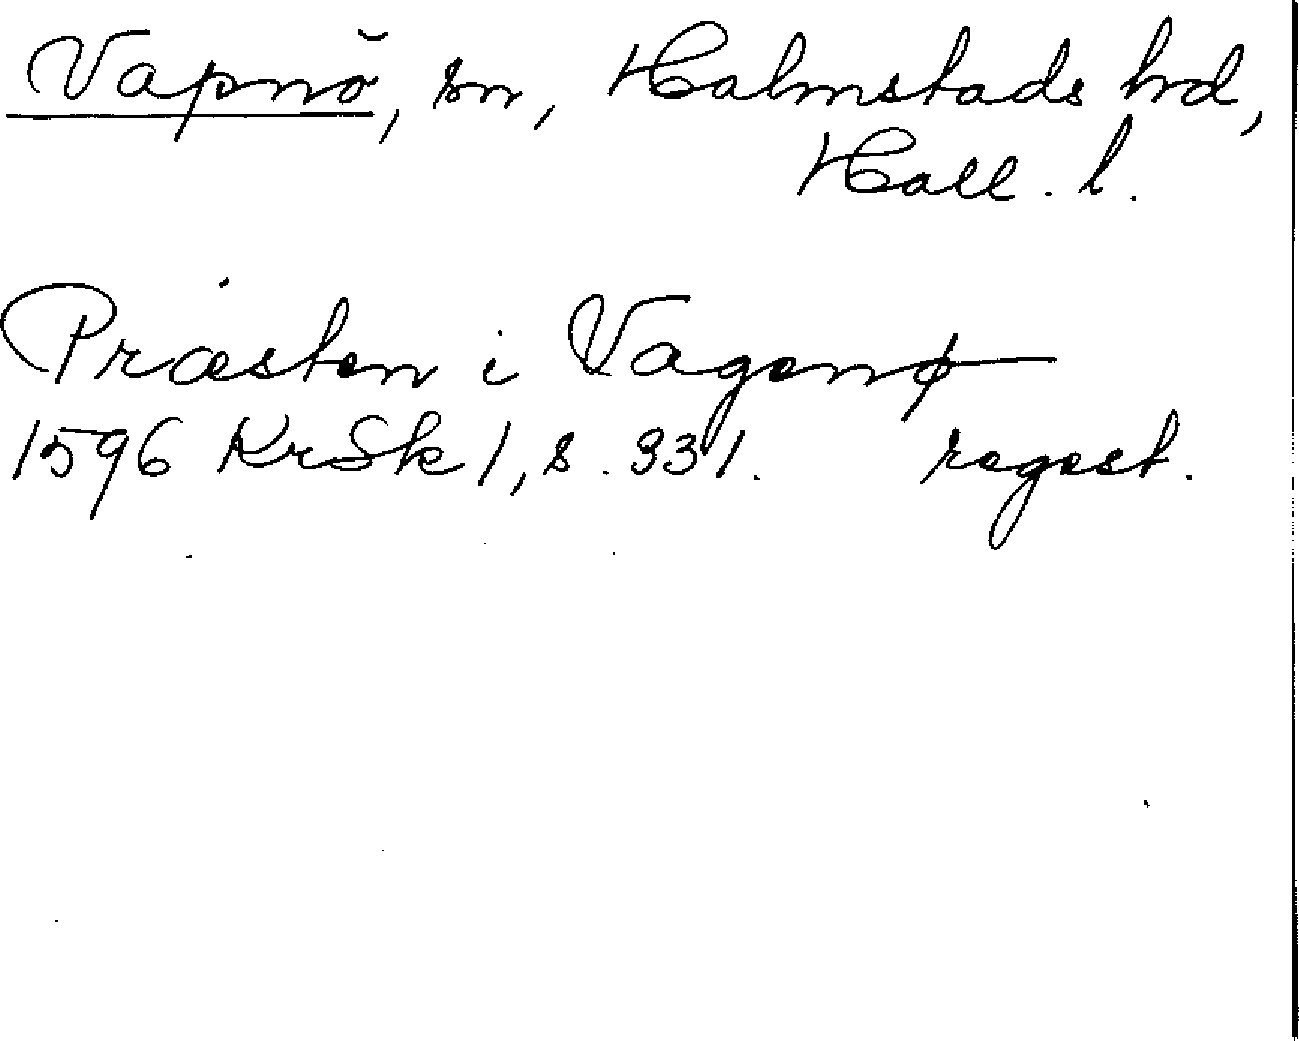 Vapnö, sn, Halmstads hd,
Hall. l.
Præsten i Vagenø
1596 KrSk 1, s. 331. regest.